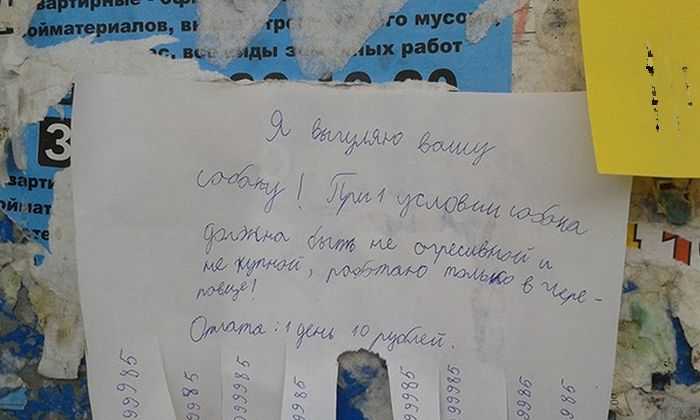 квартирные - оф
ойматериалов, вы мусо
все виды работ
З
варти
оймат
сте
Я выгуляю вашу
собаку! При 1 условии собака
должна быть не огресивной и
не купной, работаю только в Чере-
повце!
Оплата: 1 день 10 рублей.
99985
9985
99985
99985
9985
985
85